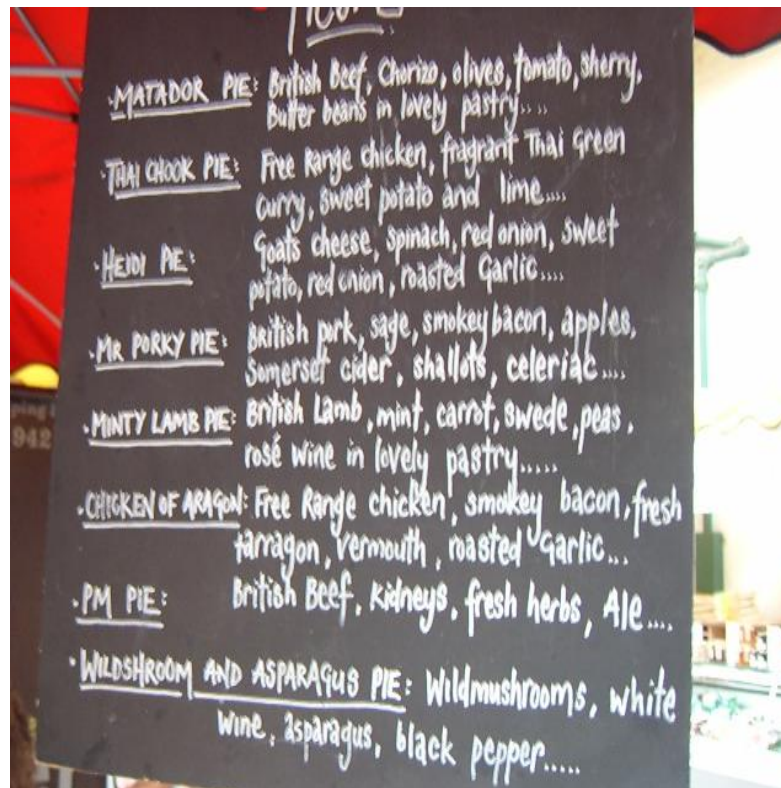 ·MATADOR PIE: British Beef, Chorizo, olives, tomato, sherry,
Butter beans in lovely pastry....
·THAI CHOOK PIE: Free Range chicken, fragrant Thai Green
curry, sweet potato and lime....
·HEIDI PIE: Goats cheese, spinach, red onion, sweet
potato, red onion, roasted Garlic....
·MR PORKY PIE: British pork, sage, smokey bacon, apples,
Somerset cider, shallots, celeriac....
·MINTY LAMB PIE: British Lamb, mint, carrot, swede, peas,
rosé wine in lovely pastry.....
·CHICKEN OF ARAGON: Free Range chicken, smokey bacon, fresh
tarragon, vermouth, roasted Garlic...
·PM PIE: British Beef, kidneys, fresh herbs, Ale....
·WILDSHROOM AND ASPARAGUS PIE: Wildmushrooms, white
wine, asparagus, black pepper.....
942